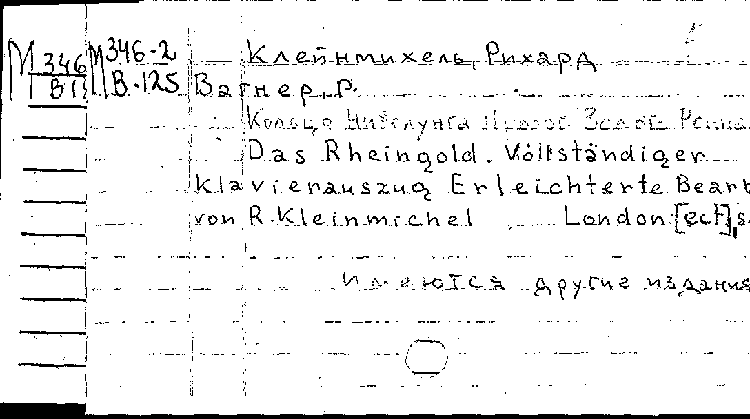 М 346 М 346-2 Клейнмихель, Рихард
В-125 Вагнер, Р.
Кольцо Нибелунга Золото Рейна
Das Rheingold. Vollständiger
Klavierauszug Erleichterte Bearb
von R. Kleinmichel London [ect], s.
Имеются другие издания